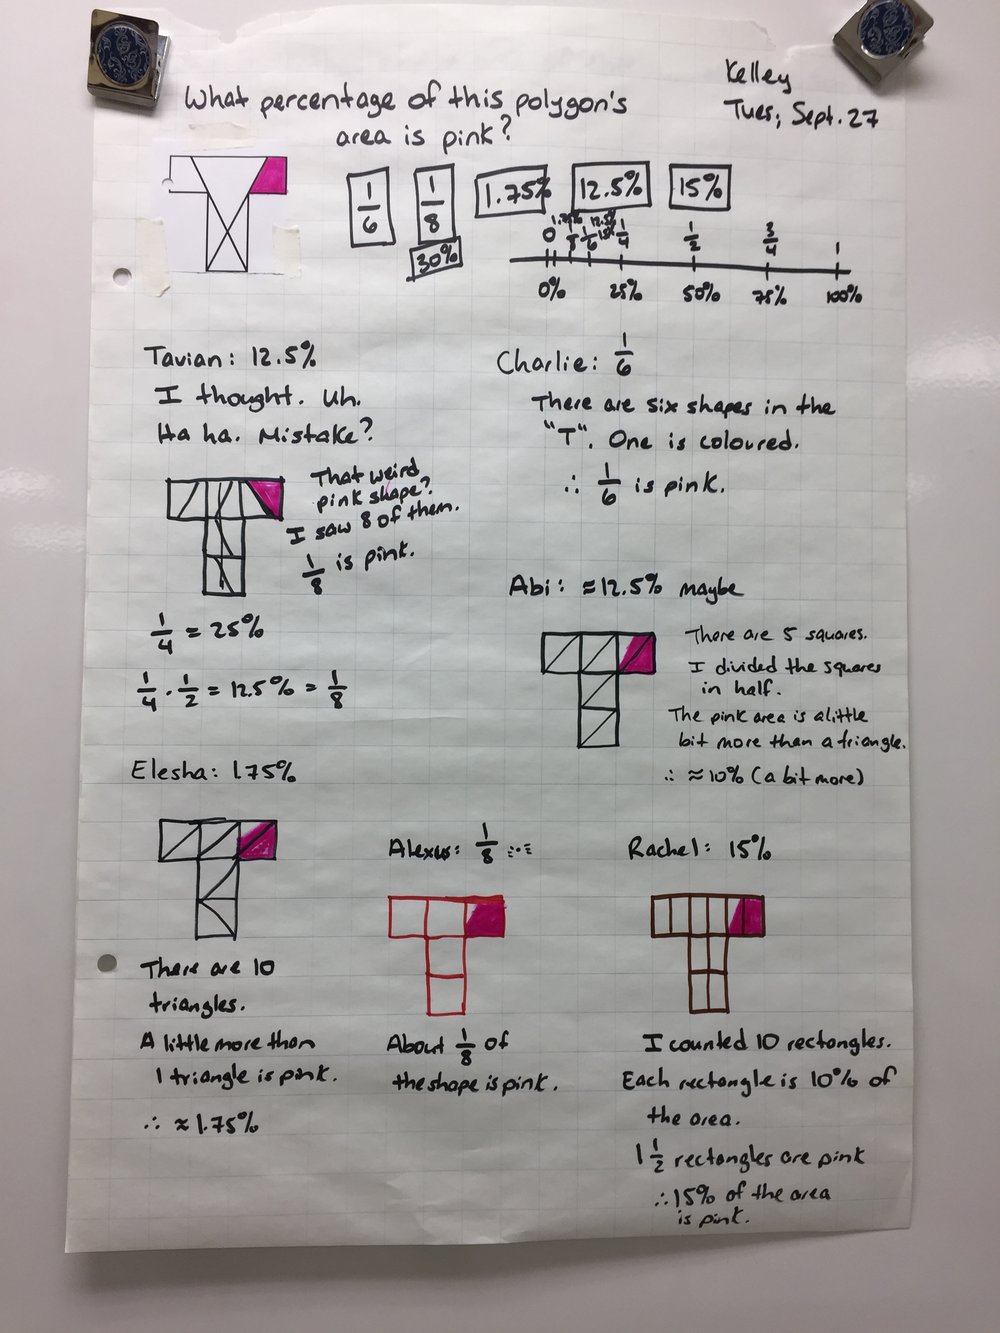 Kelley
Tues, Sept. 27
What percentage of this polygon's
area is pink?
1/6
1/8
1.75%
12.5%
15%
30%
0 1/8 1/6 15% 1/4 1/2 3/4 1
0% 25% 50% 75% 100%
Tavian: 12.5%
I thought. Uh.
Ha ha. Mistake?
That weird
pink shape?
I saw 8 of them.
1/8 is pink.
1/4 = 25%
1/4 · 1/2 = 12.5% = 1/8
Charlie: 1/6
There are six shapes in the
"T". One is coloured.
∴ 1/6 is pink.
Abi: ≈12.5% maybe
There are 5 squares.
I divided the squares
in half.
The pink area is a little
bit more than a triangle.
∴ ≈10% (a bit more)
Elesha: 1.75%
There are 10
triangles.
A little more than
1 triangle is pink.
∴ ≈1.75%
Alexus: 1/8
About 1/8 of
the shape is pink.
Rachel: 15%
I counted 10 rectangles.
Each rectangle is 10% of
the area.
1 1/2 rectangles are pink
∴ 15% of the area
is pink.